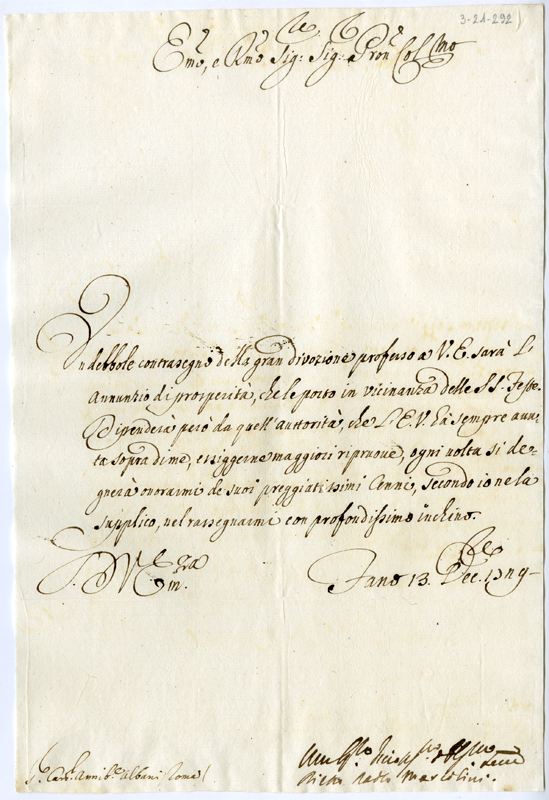 3-21-292)
Em̃o, e Rm̃o Sig:re Sig:r Pron Col.mo
Un debbole contrasegno della gran divozione professo a V. E. sarà L'
Annunzio di prosperità, che le porto in vicinanza delle SS. Feste.
Dipenderà però da quell'auttorità, che L'E. V. hà sempre avu-
ta sopra di me, essiggerne maggiori ripruove, ogni volta si de-
gnerà onorarmi de suoi preggiatissimi Cenni, secondo io ne la
supplico, nel rassegnarmi con profondissimo inchino.
D. V. Em.za
Fano 13. Dec.re
S.r Card. Annib.e Albani Roma
Um.o
Pietro Paolo Marcolini.